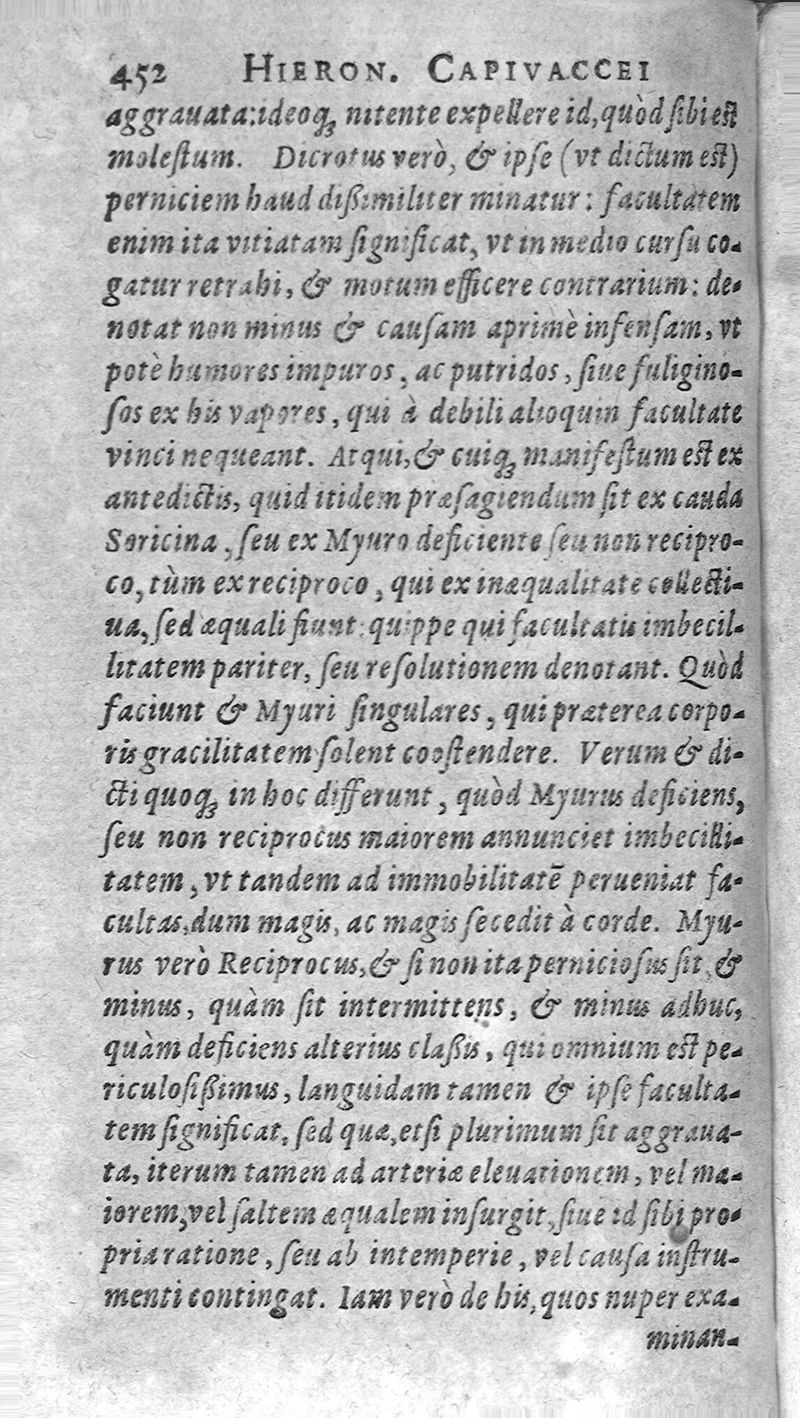 452 HIERON. CAPIVACCEI
aggrauata:ideoq́ꝫ nitente expellere id,quòd ſibi est
moleſtum. Dicrotus verò, & ipſe (vt dictum est)
perniciem haud dißimiliter minatur: facultatem
enim ita vitiatam ſignificat, vt in medio curſu co-
gatur retrahi, & motum efficere contrarium: de-
notat non minus & cauſam aprimè infenſam, vt
potè humores impuros, ac putridos, ſiue fuligino-
ſos ex his vapores, qui à debili alioquin facultate
vinci nequeant. Atqui,& cuiq́ꝫ manifeſtum est ex
antedictis, quid itidem præſagiendum ſit ex cauda
Soricina, ſeu ex Myuro deficiente ſeu non recipro-
co, tùm ex reciproco, qui ex inæqualitate collecti-
ua, ſed æquali fiunt: quippe qui facultatis imbecil-
litatem pariter, ſeu reſolutionem denotant. Quòd
faciunt & Myuri ſingulares, qui præterea corpo-
ris gracilitatem ſolent cooſtendere. Verum & di-
cti quoq́ꝫ in hoc differunt, quòd Myurus deficiens,
ſeu non reciprocus maiorem annunciet imbecilli-
tatem, vt tandem ad immobilitatē perueniat fa-
cultas,dum magis, ac magis ſecedit à corde. Myu-
rus verò Reciprocus,& ſi non ita pernicioſus ſit, &
minus, quàm ſit intermittens, & minus adhuc,
quàm deficiens alterius claßis, qui omnium est pe-
riculoſißimus, languidam tamen & ipſe faculta-
tem ſignificat, ſed quæ,etſi plurimum ſit aggraua-
ta, iterum tamen ad arteriæ eleuationem, vel ma-
iorem,vel ſaltem æqualem inſurgit, ſiue id ſibi pro-
pria ratione, ſeu ab intemperie, vel cauſa inſtru-
menti contingat. Iam verò de his, quos nuper exa-
minan-